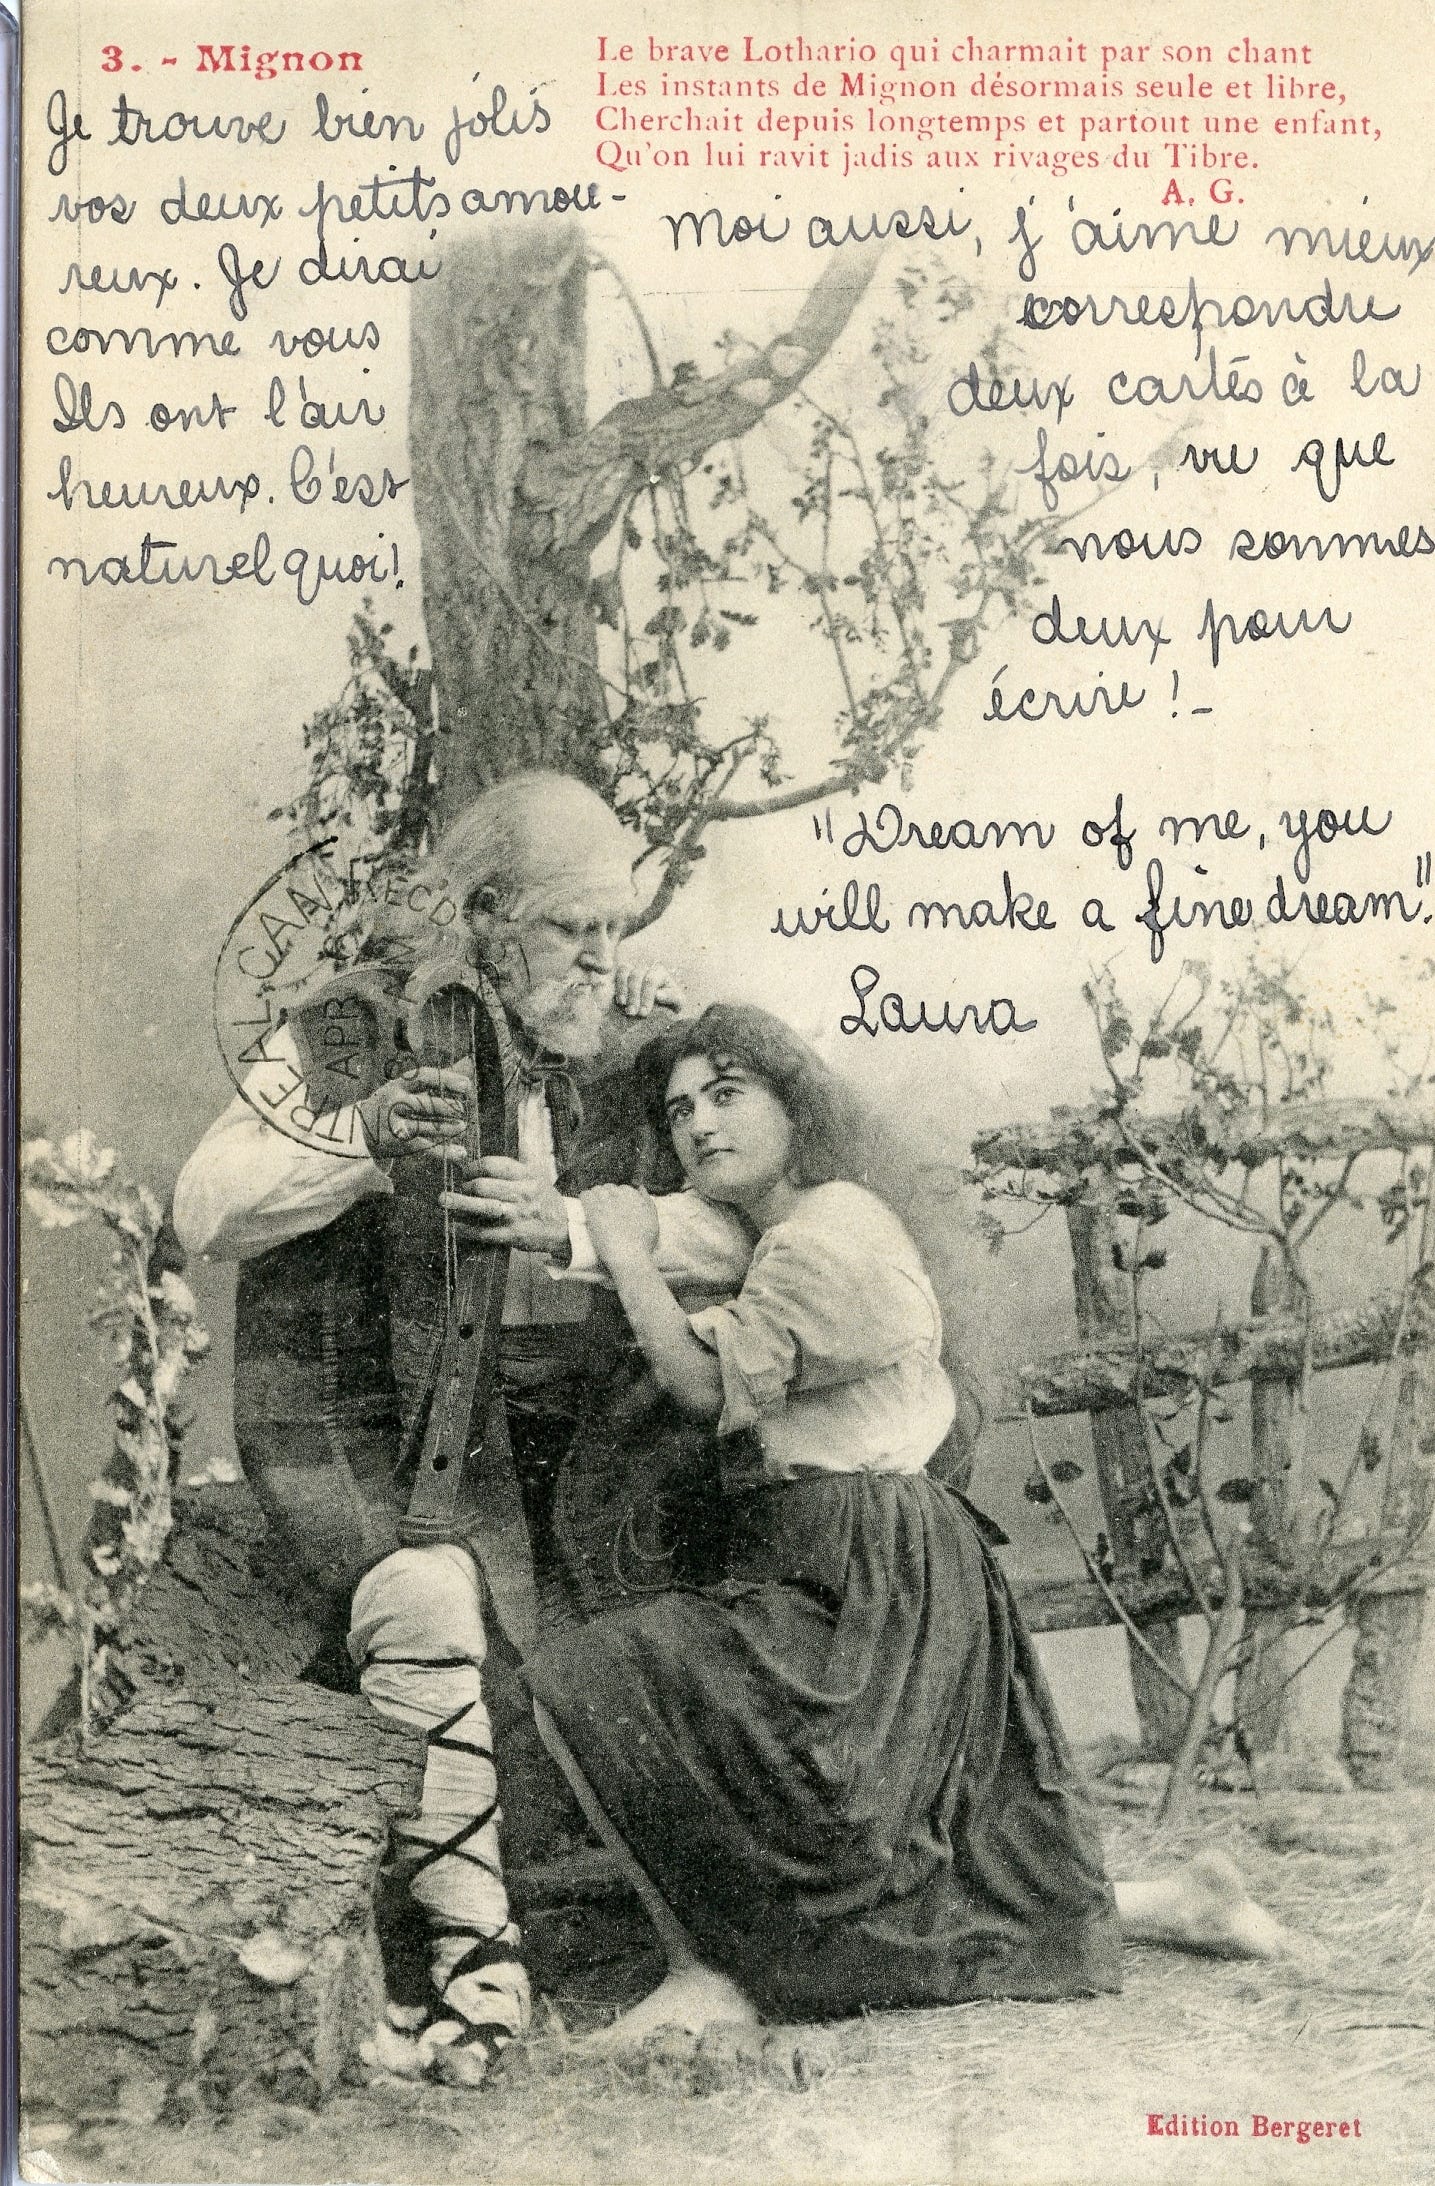 3. - Mignon
Le brave Lothario qui charmait par son chant
Les instants de Mignon désormais seule et libre,
Cherchait depuis longtemps et partout une enfant,
Qu'on lui ravit jadis aux rivages du Tibre.
A. G.
Je trouve bien jolis
vos deux petits amou-
reux. Je dirai
comme vous
Ils ont l'air
heureux. C'est
naturel quoi!
Moi aussi, j'aime mieux
correspondre
deux cartes à la
fois, vu que
nous sommes
deux pour
écrire! -
"Dream of me, you
will make a fine dream".
Laura
MONTREAL. CAN. REC'D
APR
8
Edition Bergeret